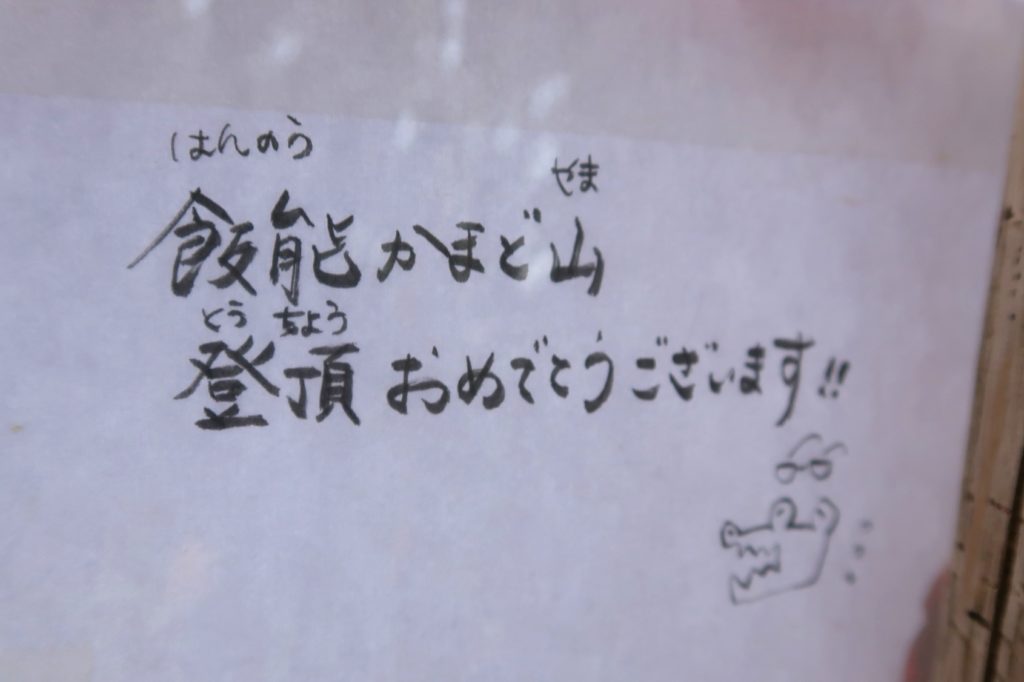 はんのう やま
飯能かまど山
とう ちょう
登頂おめでとうございます!!